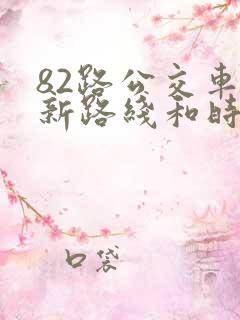 82路公交車
新路綫和時
口袋